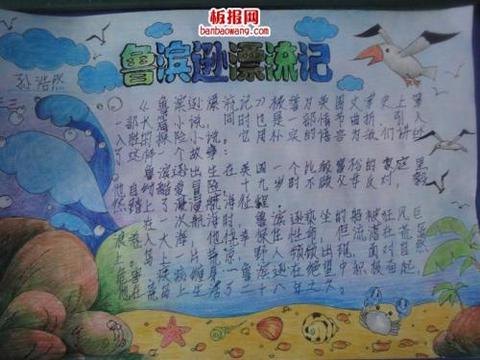 板报网
banbaowang.com
鲁滨逊漂流记
孙浩然
《鲁滨逊漂流记》被誉为英国文学史上第
一部长篇小说，同时也是一部情节曲折、引人
入胜的探险小说。它用朴实的语言为我们讲述
了这样一个故事：
鲁滨逊出生在英国一个比较富裕的家庭里
他自幼酷爱冒险，十九岁时不顾父母反对，毅
然踏上了航海征程。
在一次航海时，鲁滨逊乘坐的船被狂风巨
浪卷入大海，他侥幸保住性命，但流落在荒
上。岛上一片荒凉，野人频频出现，面对
鲁滨逊在绝望中积极奋起，
在荒岛上生活了二十八年之久。